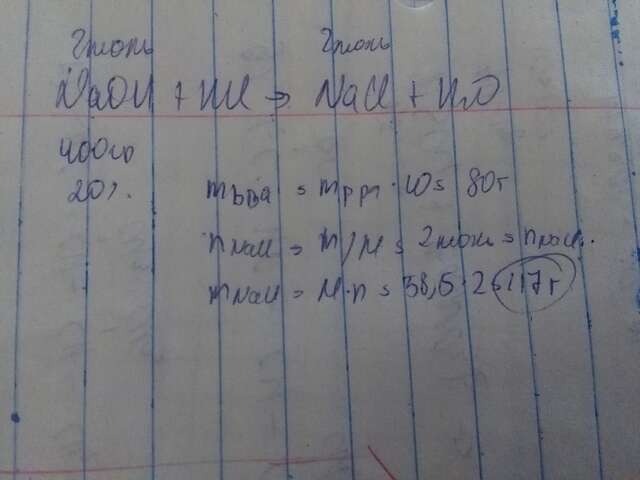 2 моль 2 моль
NaOH + HCl → NaCl + H₂O
400 г
20%.
m в-ва = m р-р · ω = 80 г
n NaCl = m/M = 2 моль = n NaCl.
m NaCl = M · n = 58,5 · 2 = 117 г